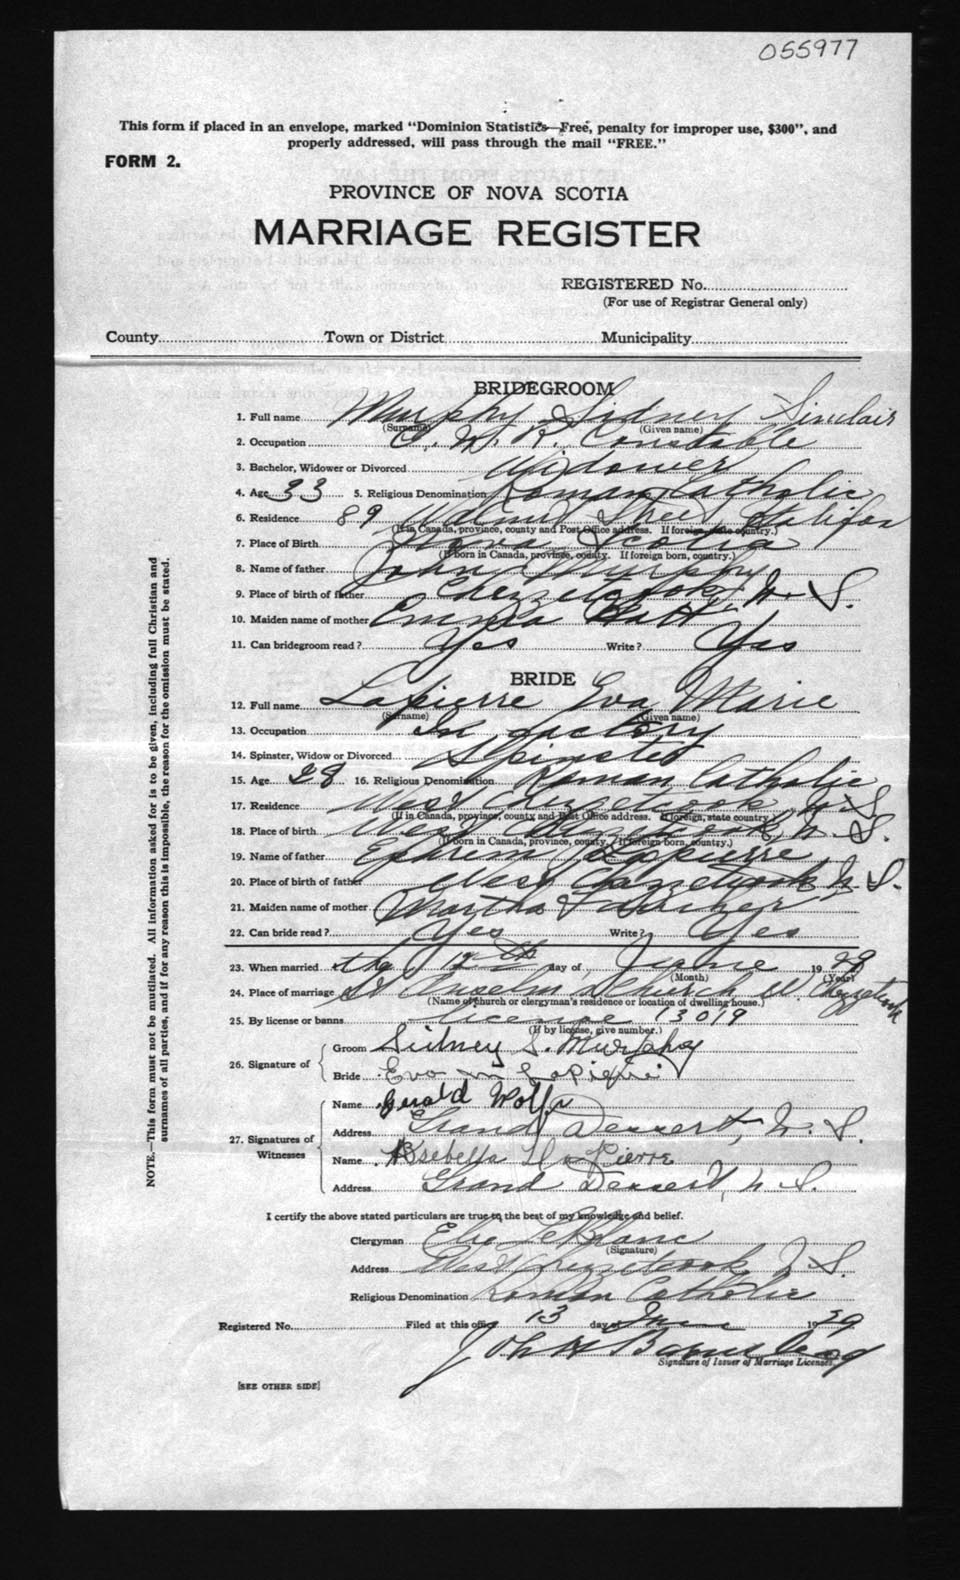 055977
This form if placed in an envelope, marked "Dominion Statistics—Free, penalty for improper use, $300", and
properly addressed, will pass through the mail "FREE."
FORM 2.
PROVINCE OF NOVA SCOTIA
MARRIAGE REGISTER
REGISTERED No.
(For use of Registrar General only)
County Town or District Municipality
BRIDEGROOM
1. Full name Murphy Sidney Sinclair
(Surname) (Given name)
2. Occupation C. N. R. Constable
3. Bachelor, Widower or Divorced Widower
4. Age 33 5. Religious Denomination Roman Catholic
6. Residence 89 Walnut Street, Halifax
(If in Canada, province, county and Post Office address. If foreign, state country.)
7. Place of Birth Nova Scotia
(If born in Canada, province, county. If foreign born, country.)
8. Name of father John Murphy
9. Place of birth of father Chezzetcook, N. S.
10. Maiden name of mother Emma
11. Can bridegroom read? Yes Write? Yes
BRIDE
12. Full name Lapierre Eva Marie
(Surname) (Given name)
13. Occupation In factory
14. Spinster, Widow or Divorced Spinster
15. Age 28 16. Religious Denomination Roman Catholic
17. Residence West Chezzetcook, N. S.
(If in Canada, province, county and Post Office address. If foreign, state country.)
18. Place of birth West Chezzetcook, N. S.
(If born in Canada, province, county. If foreign born, country.)
19. Name of father Ephrem Lapierre
20. Place of birth of father West Chezzetcook N. S.
21. Maiden name of mother Martha
22. Can bride read? Yes Write? Yes
23. When married the 12th day of June 1929
(Month) (Year)
24. Place of marriage St Anselm Church W Chezzetcook
(Name of church or clergyman's residence or location of dwelling house.)
25. By license or banns license 13019
(If by license, give number.)
26. Signature of
Groom Sidney S. Murphy
Bride Eva M Lapierre
27. Signatures of Witnesses
Name Gerald Wolfe
Address Grand Dessert, N. S.
Name Isabella LaPierre
Address Grand Dessert, N. S.
I certify the above stated particulars are true to the best of my knowledge and belief.
Clergyman LeBlanc
(Signature)
Address West Chezzetcook N. S.
Religious Denomination Roman Catholic
Registered No. Filed at this office 13 day of June 1929
John H
Signature of Issuer of Marriage Licenses.
[SEE OTHER SIDE]
NOTE.—This form must not be mutilated. All information asked for is to be given, including full Christian and
surnames of all parties, and if for any reason this is impossible, the reason for the omission must be stated.